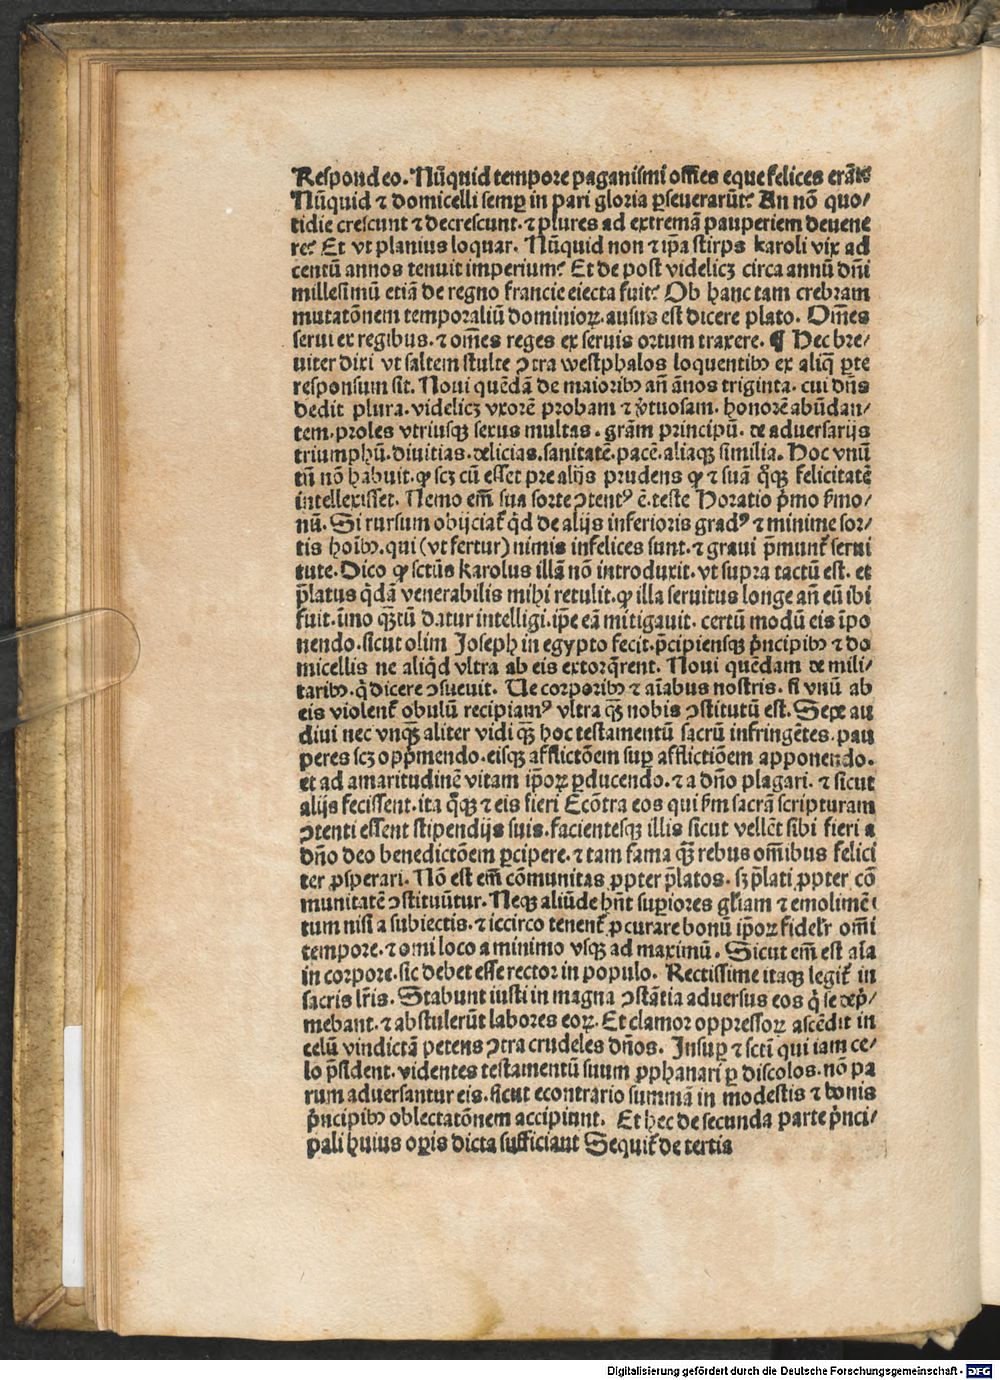 Respondeo. Nūquid tempore paganismi om̄es eque felices erāt?
Nūquid ⁊ domicelli semꝑ in pari gloria ꝑseuerarūt? An nō quo/
tidie crescunt ⁊ decrescunt. ⁊ plures ad extremā pauperiem deuene
re? Et vt planius loquar. Nūquid non ⁊ ip̄a stirps karoli vix ad
centū annos tenuit imperium? Et de post videlicꝫ circa annū dn̄i
millesimū etiā de regno francie eiecta fuit? Ob hanc tam crebram
mutatōnem temporaliū dominioꝝ. ausus est dicere plato. Om̄es
serui ex regibus. ⁊ om̄es reges ex seruis ortum traxere. ¶ Hec bre/
uiter dixi vt saltem stulte ꝯtra westphalos loquentibꝰ ex aliq̄ ꝑte
responsum sit. Noui quēdā de maioribꝰ an̄ ānos triginta. cui dn̄s
dedit plura. videlicꝫ vxorē probam ⁊ v̓tuosam. honorē abūdan/
tem. proles vtriusqꝫ sexus multas. gr̄am principū. de aduersarijs
triumphū. diuitias. delicias. sanitatē. pacē. aliaqꝫ similia. Hoc vnū
tn̄ nō habuit. ꝙ scꝫ cū esset pre alijs prudens ꝙ ⁊ suā q̄qꝫ felicitatē
intellexisset. Nemo em̄ sua sorte ꝯtentꝰ ē. teste Horatio p̓mo s̓mo/
nū. Si rursum obijciat̄ q̓d de alijs inferioris gradꝰ ⁊ minime sor/
tis hoīibꝰ. qui (vt fertur) nimis infelices sunt. ⁊ graui p̄munt̄ serui
tute. Dico ꝙ sctūs karolus illā nō introduxit. vt supra tactū est. et
p̄latus q̓dā venerabilis mihi retulit. ꝙ illa seruitus longe an̄ eū ibi
fuit. īmo qꝫtū datur intelligi. ip̄e eā mitigauit. certū modū eis īpo
nendo. sicut olim Joseph in egypto fecit. p̄cipiensqꝫ p̓ncipibꝰ ⁊ do
micellis ne aliq̓d vltra ab eis extorq̄rent. Noui quēdam de mili/
taribꝰ. q̓ dicere ꝯsueuit. Ue corporibꝰ ⁊ aīabus nostris. si vnū ab
eis violent̓ obulū recipiamꝰ vltra qꝫ nobis ꝯstitutū est. Sepe au
diui nec vnqꝫ aliter vidi qꝫ hoc testamentū sacrū infringētes. pau
peres scꝫ opp̓mendo. eisqꝫ afflictōem suꝑ afflictiōem apponendo.
et ad amaritudinē vitam ip̄oꝝ ꝑducendo. ⁊ a dn̄o plagari. ⁊ sicut
alijs fecissent. ita q̄qꝫ ⁊ eis fieri Ecōtra eos qui s̓m sacrā scripturam
ꝯtenti essent stipendijs suis. facientesqꝫ illis sicut vellēt sibi fieri a
dn̄o deo benedictōem ꝑcipere. ⁊ tam fama qꝫ rebus om̄ibus felici
ter ꝓsperari. Nō est em̄ cōmunitas ꝓpter p̄latos. sꝫ p̄lati ꝓpter cō
munitatē ꝯstituūtur. Neqꝫ aliūde hn̄t suꝑiores gl̓iam ⁊ emolimē
tum nisi a subiectis. ⁊ iccirco tenent̄ ꝓcurare bonū ip̄oꝝ fidelr̓ om̄i
tempore. ⁊ om̄i loco a minimo vsqꝫ ad maximū. Sicut em̄ est aīa
in corpore. sic debet esse rector in populo. Rectissime itaqꝫ legit̄ in
sacris lr̄is. Stabunt iusti in magna ꝯstātia aduersus eos q̓ se dep̓/
mebant. ⁊ abstulerūt labores eoꝝ. Et clamor oppressoꝝ ascēdit in
celū vindictā petens ꝯtra crudeles dn̄os. Insuꝑ ⁊ sctī qui iam ce/
lo p̄sident. videntes testamentū suum ꝓphanari ꝑ discolos. nō pa
rum aduersantur eis. sicut econtrario summā in modestis ⁊ bonis
p̓ncipibꝰ oblectatōnem accipiunt. Et hec de secunda parte p̓nci/
pali huius oꝑis dicta sufficiant Sequit̄ de tertia
Digitalisierung gefördert durch die Deutsche Forschungsgemeinschaft - DFG